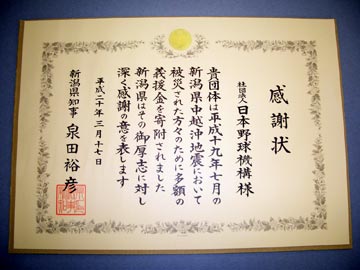 感謝状
社団法人 日本野球機構 様
貴団体は平成十九年七月の
新潟県中越沖地震において
被災された方々のために多額の
義援金を寄附されました
新潟県はその御厚志に対し
深く感謝の意を表します
平成二十年三月十七日
新潟県知事 泉田裕彦